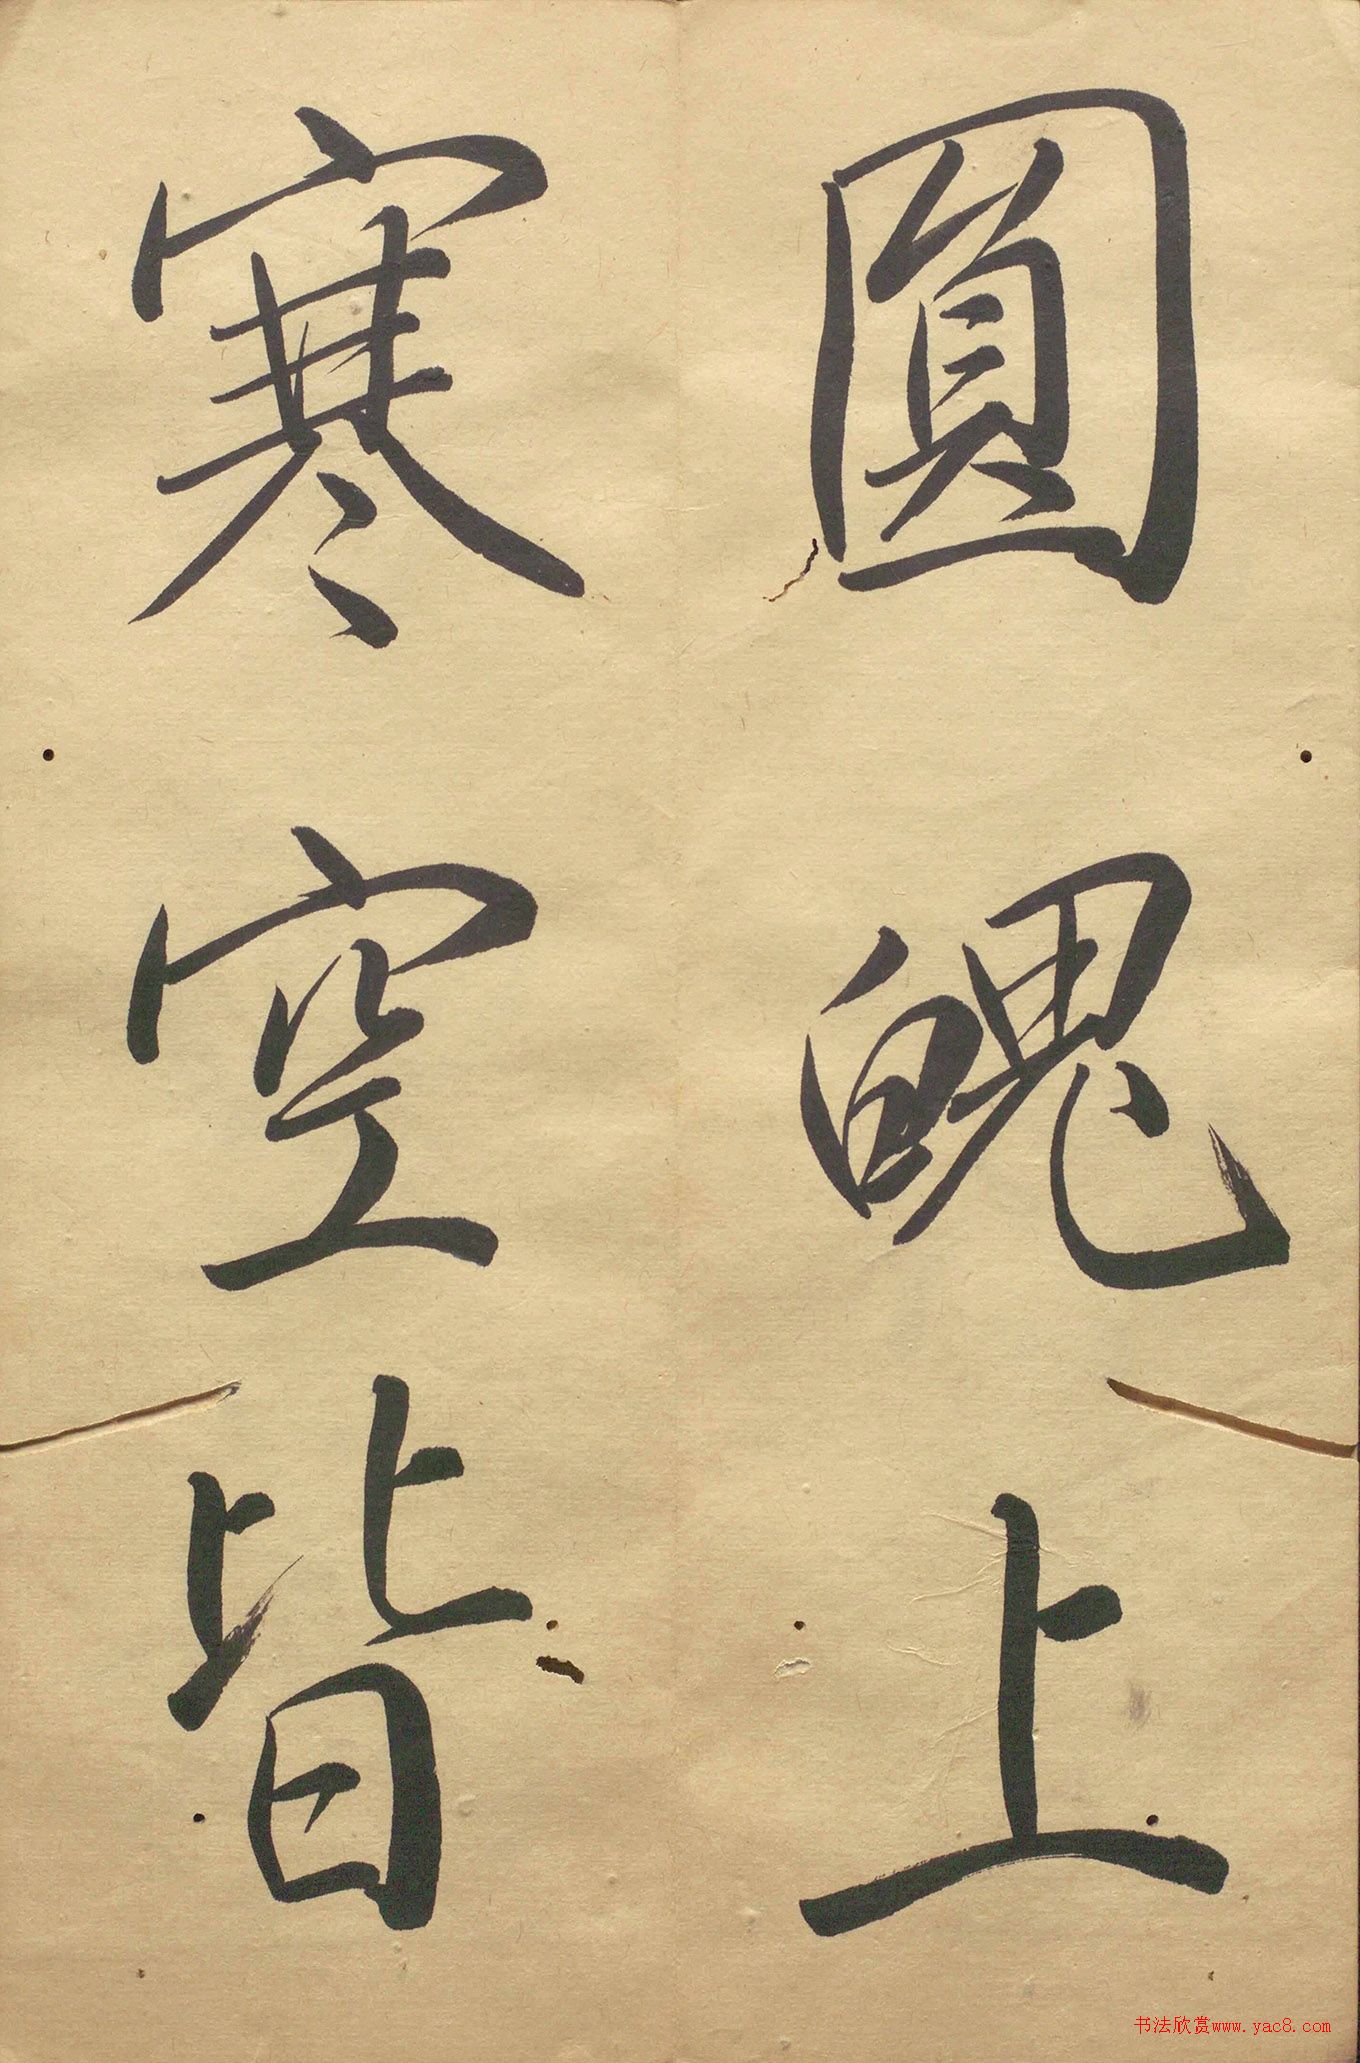 圓魄上
寒空皆
书法欣赏www.yac8.com